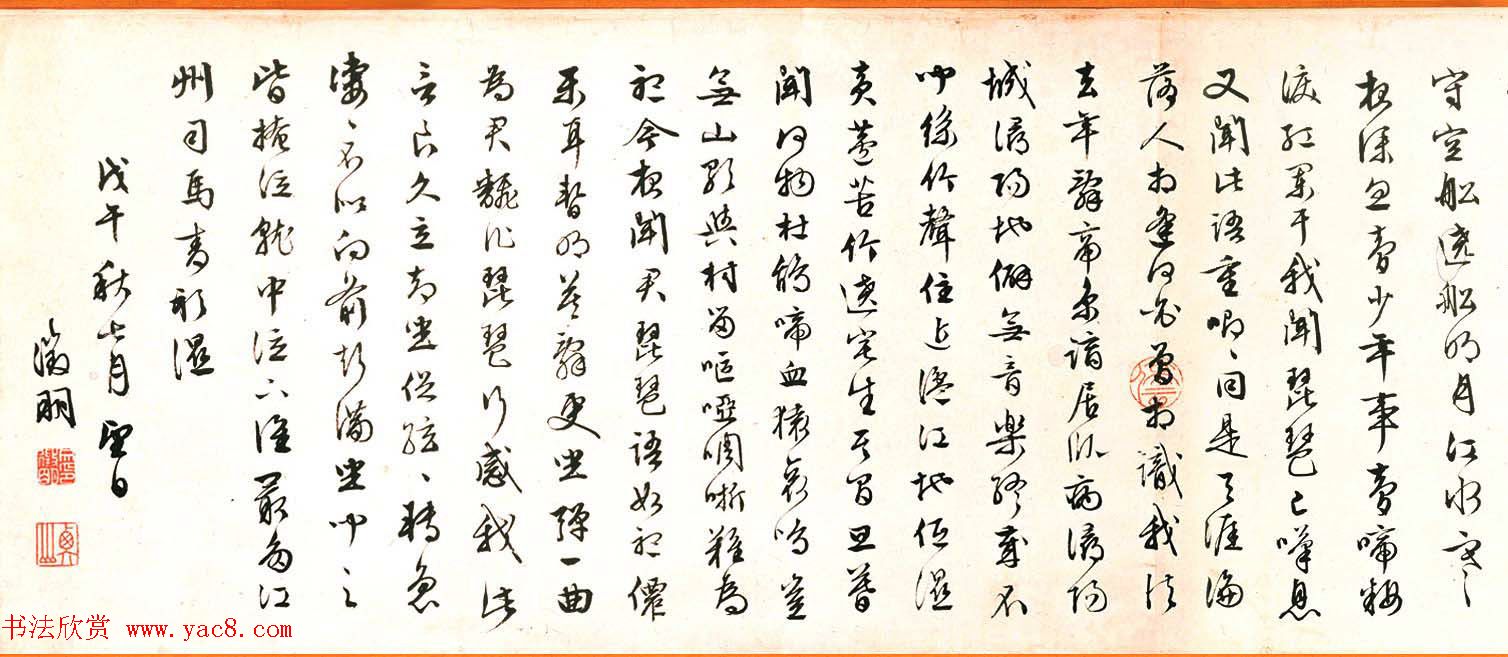 守空船遶船明月江水寒
夜深忽夢少年事夢啼粧
淚紅闌干我聞琵琶已嘆息
又聞此語重唧〻同是天涯淪
落人相逢何必曾相識我從
去年辭帝京謫居臥病潯陽
城潯陽地僻無音樂終歲不
聞絲竹聲住近湓江地低濕
黃蘆苦竹遶宅生其間旦暮
聞何物杜鵑啼血猿哀鳴豈
無山歌與村笛嘔啞啁哳難為
聽今夜聞君琵琶語如聽僊
樂耳暫明莫辭更坐彈一曲
為君翻作琵琶行感我此
言良久立却坐促絃〻轉急
凄〻不似向前聲滿坐聞之
皆掩泣就中泣下誰最多江
州司馬青衫濕
戊午秋七月望日
徵明
书法欣赏 www.yac8.com